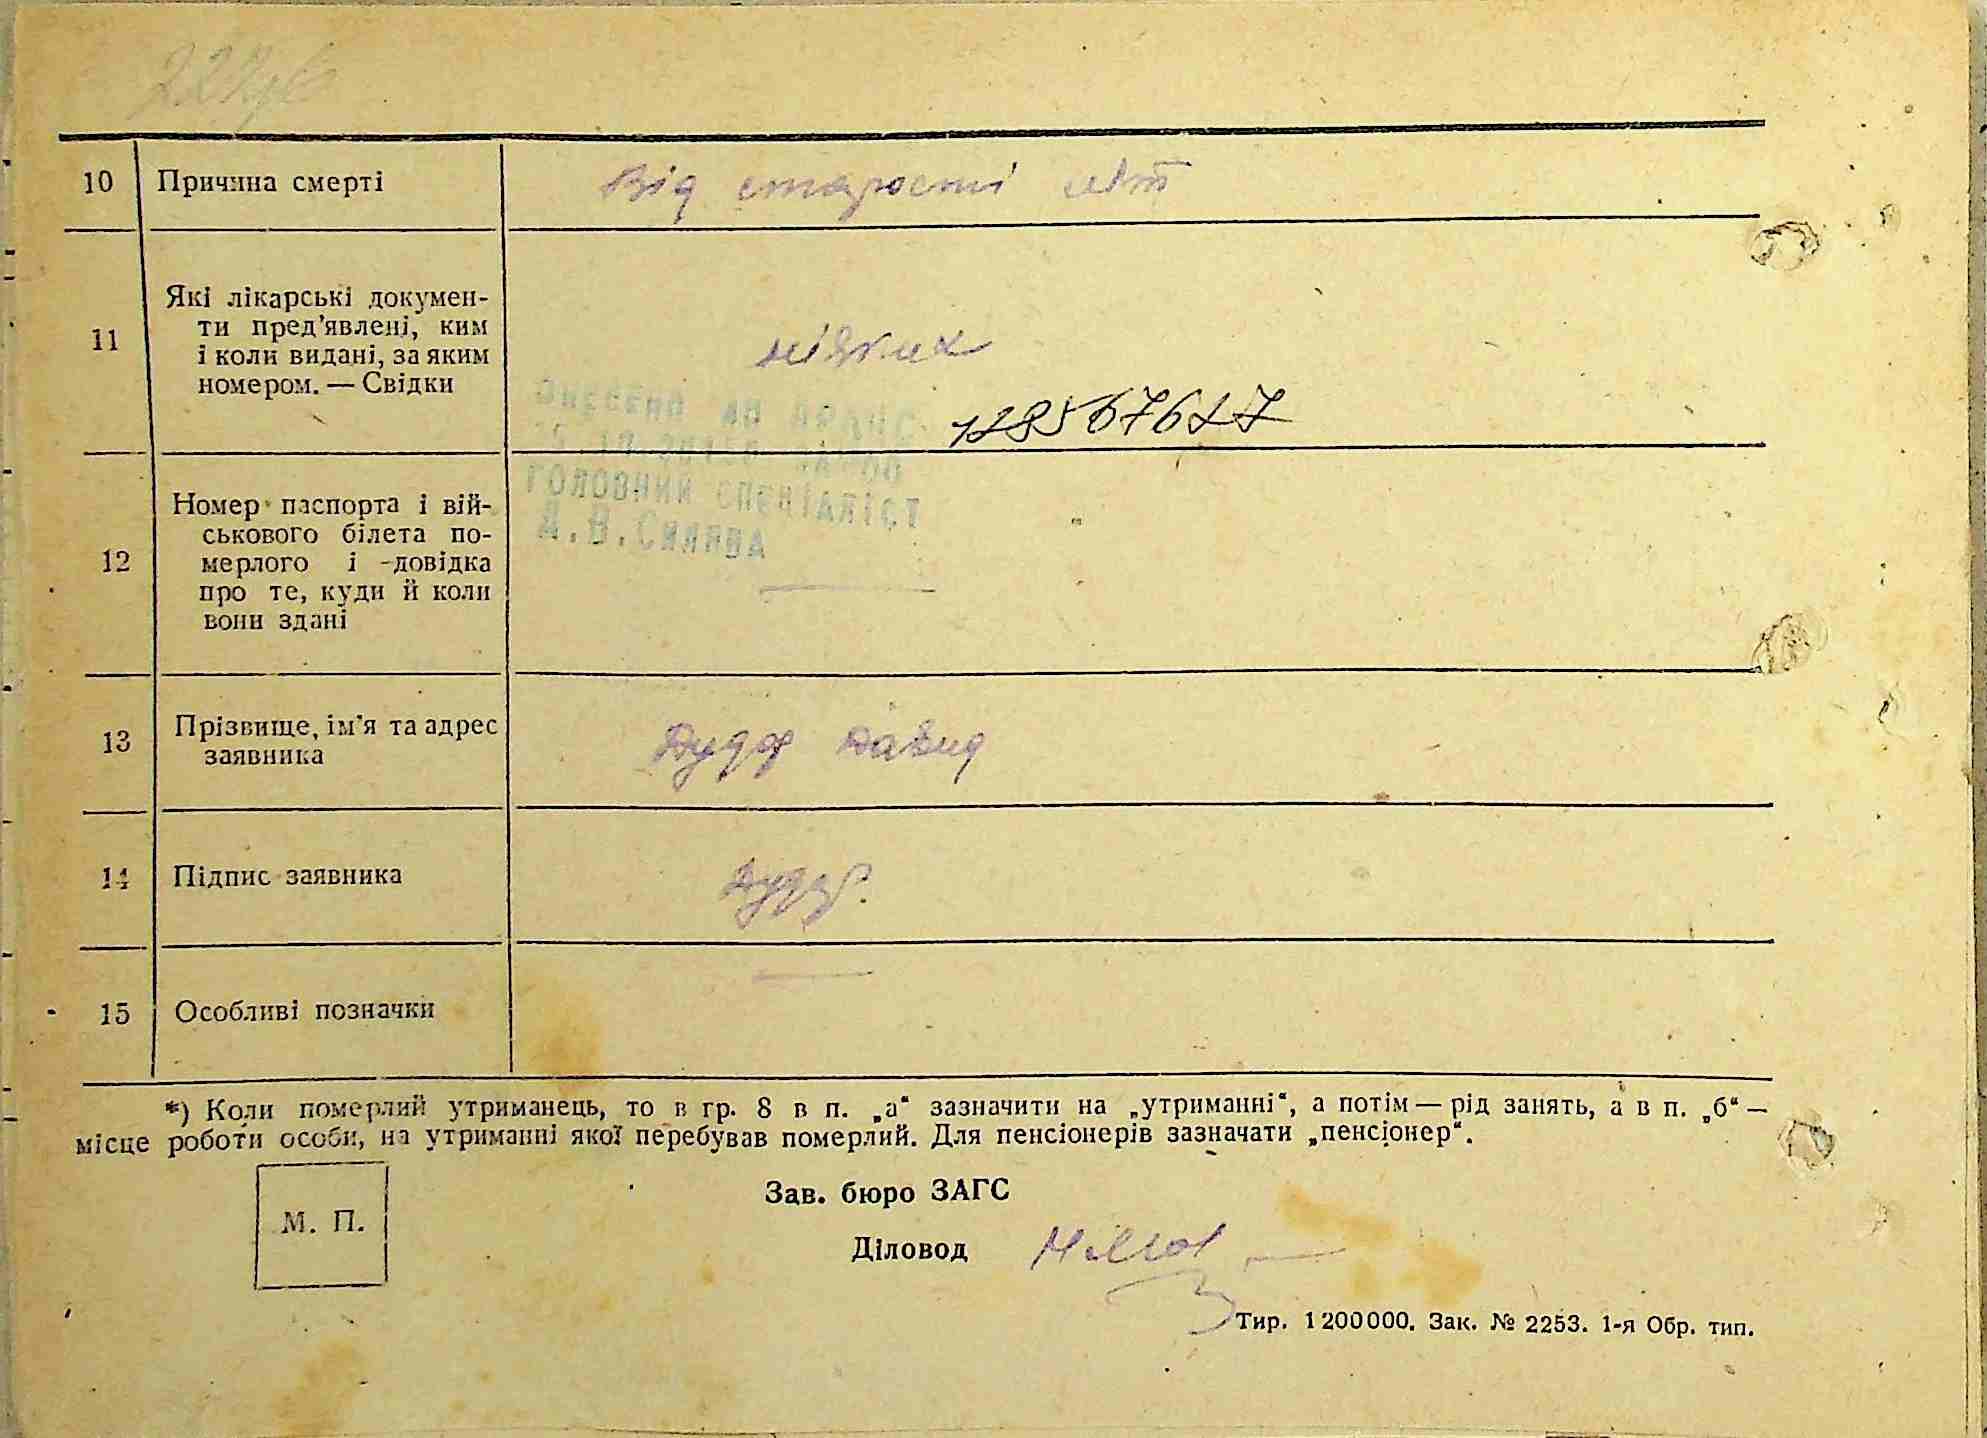 10 Причина смерті Від старості літ
11 Які лікарські докумен-
ти пред'явлені, ким
і коли видані, за яким
номером. — Свідки
ніяких
Внесено до ДРАЦС
ГОЛОВНИЙ СПЕЦІАЛІСТ
12 Номер паспорта і вій-
ськового білета по-
мерлого і -довідка
про те, куди й коли
вони здані
13 Прізвище, ім'я та адрес
заявника
Дудар Давид
14 Підпис заявника Дудар.
15 Особливі позначки
*) Коли померлий утриманець, то в гр. 8 в п. „а“ зазначити на „утриманні“, а потім — рід занять, а в п. „б“ —
місце роботи особи, на утриманні якої перебував померлий. Для пенсіонерів зазначати „пенсіонер“.
М. П.
Зав. бюро ЗАГС
Діловод
Тир. 1200000. Зак. № 2253. 1-я Обр. тип.